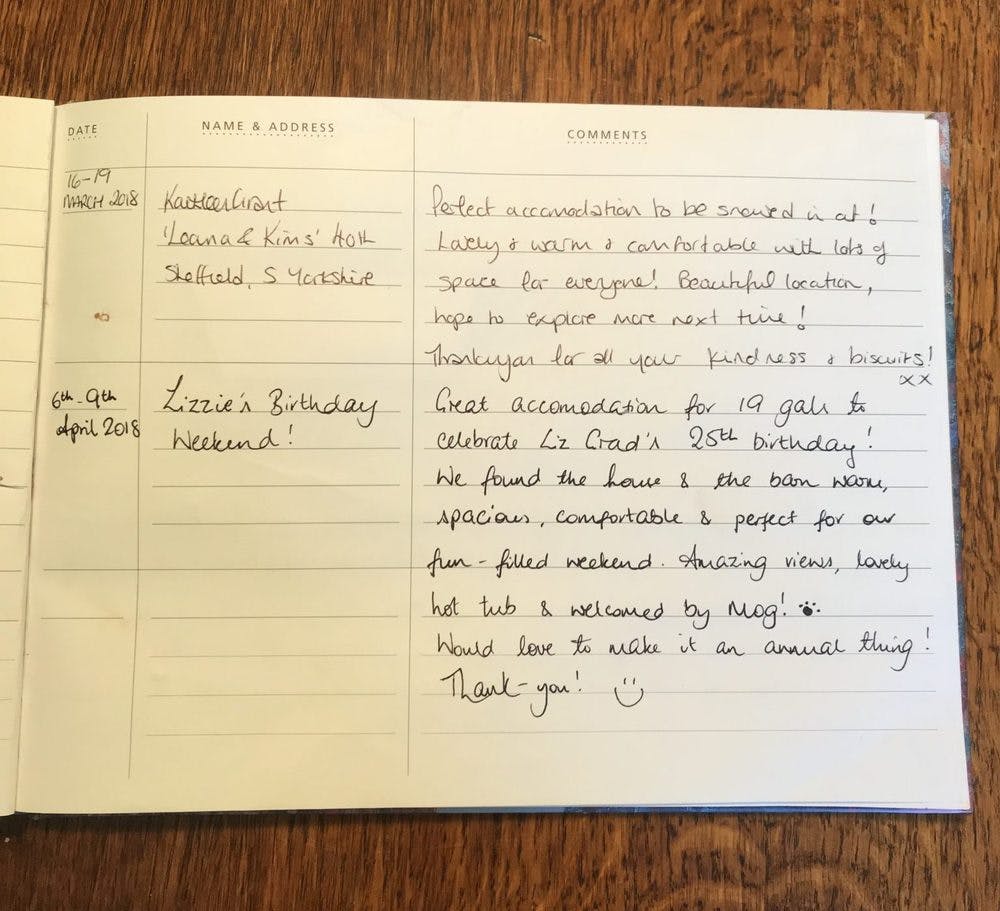 DATE NAME & ADDRESS COMMENTS
16-19
MARCH 2018
Grant
'Leana & Kims' 40th
Sheffield, S Yorkshire
Perfect accomodation to be snowed in at!
Lovely & warm & comfortable with lots of
space for everyone! Beautiful location,
hope to explore more next time!
Thankyou for all your kindness & biscuits!
xx
6th - 9th
April 2018
Lizzie's Birthday
Weekend!
Great accomodation for 19 gals to
celebrate Liz Crad's 25th birthday!
We found the house & the barn warm,
spacious, comfortable & perfect for our
fun-filled weekend. Amazing views, lovely
hot tub & welcomed by Mog!
Would love to make it an annual thing!
Thank-you!